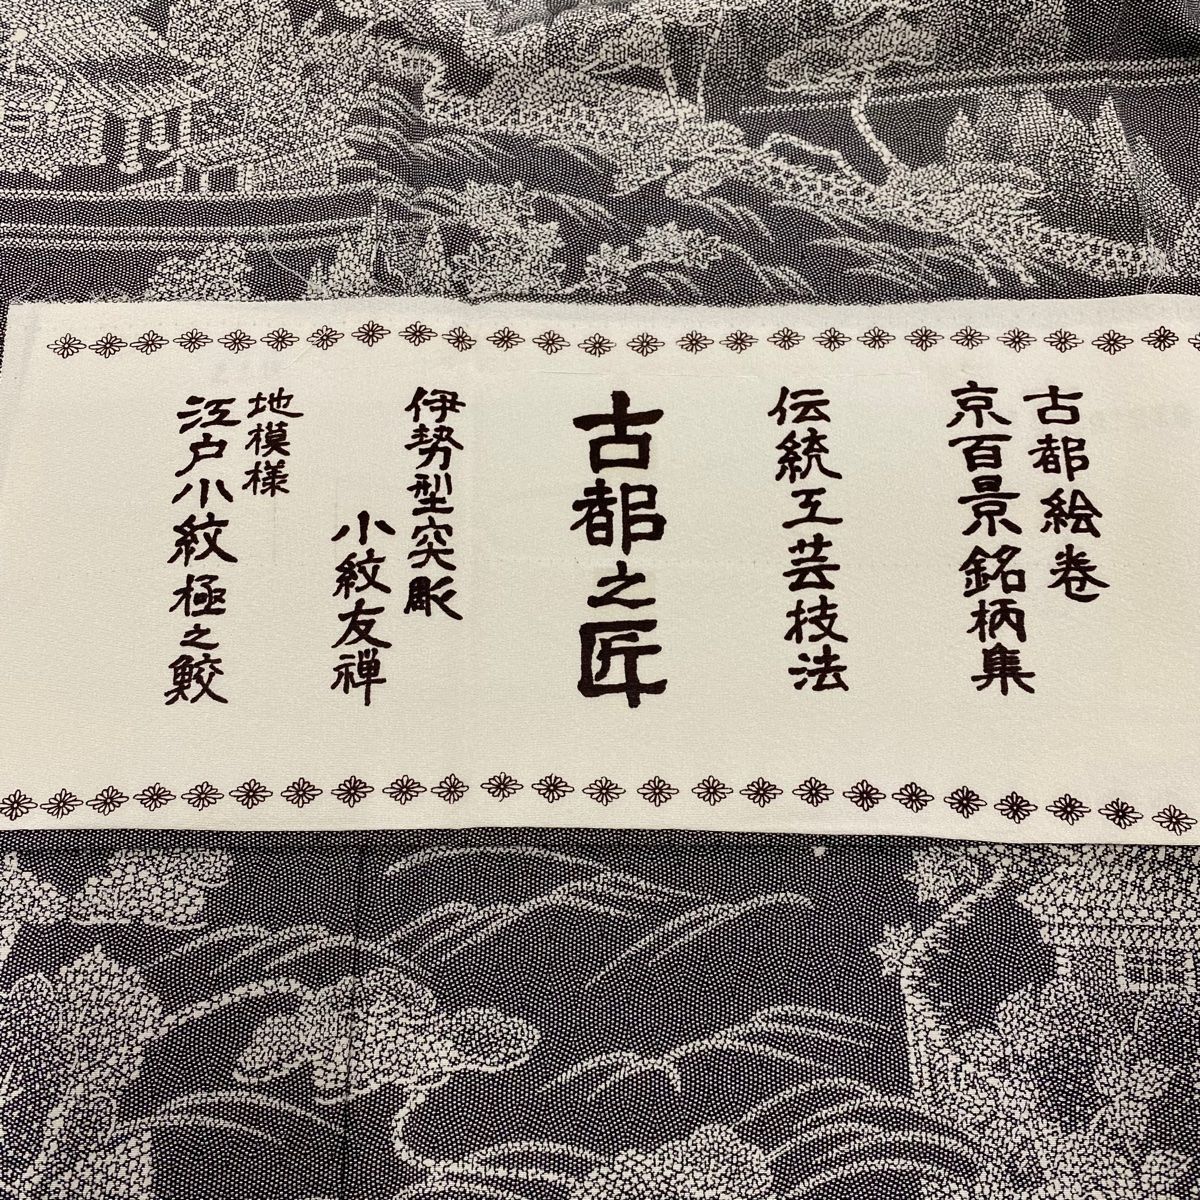 古都絵巻
京百景銘柄集
伝統工芸技法
古都之匠
伊勢型突彫
小紋友禅
地模様
江戸小紋極之鮫